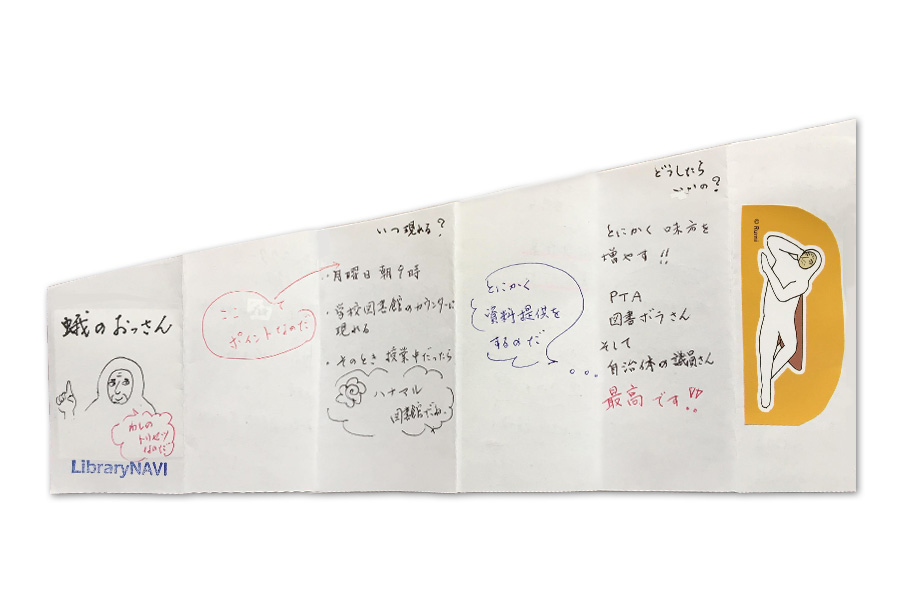 蛾のおっさん
わしの
トリセツ
なのだ
LibraryNAVI
ここ って
ポイントなのだ
いつ現れる?
・月曜日朝9時
・学校図書館のカウンターに
現れる
・そのとき授業中だったら
ハナマル
図書館だね。
とにかく
資料提供を
するのだ
どうしたら
いいの?
とにかく 味方を
増やす!!
PTA
図書ボラさん
そして
自治体の議員さん
最高です!!
© Rumi